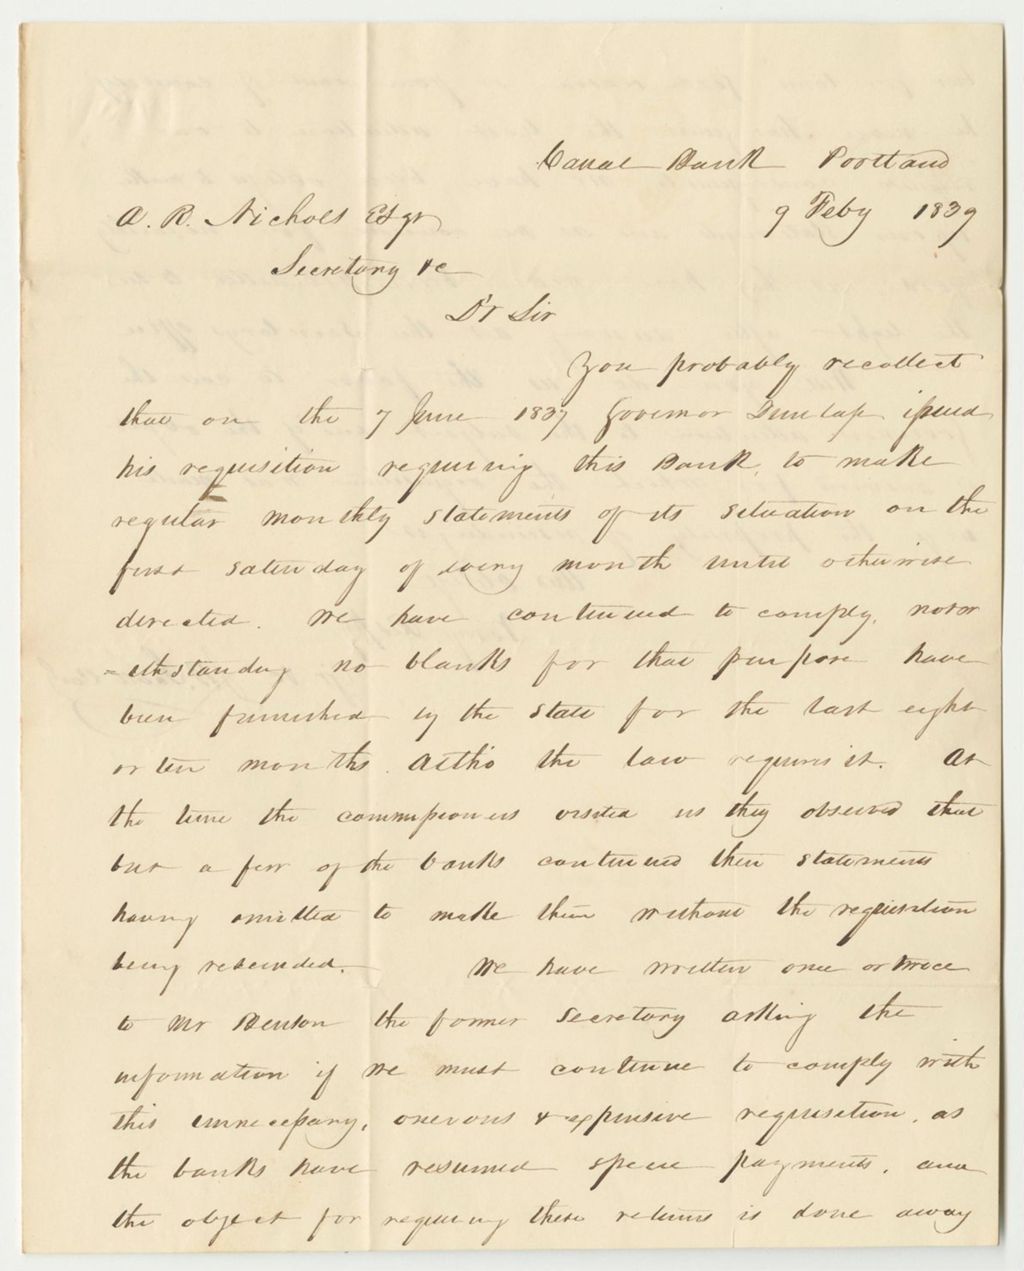 Canal Bank Portland
A. R. Nichols Esqr 9 Feby 1839
Secretary &c
Dr Sir
You probably recollect
that on the 7 June 1837 Governor Dunlap issued
his requisition requiring this Bank, to make
regular monthly statements of its situation on the
first saturday of every month until otherwise
directed. We have continued to comply, notw
=ithstanding no blanks for that purpose have
been furnished by the State for the last eight
or ten months. altho the law requires it. At
the time the commissioners visited us they observed that
but a few of the banks continued their statements
having omitted to make them without the requisition
being rescinded. We have written once or twice
to Mr Benson the former Secretary asking the
information if we must continue to comply with
this unnecessary, onerous & expensive requisition, as
the banks have resumed specie payments, and
the object for requiring these returns is done away